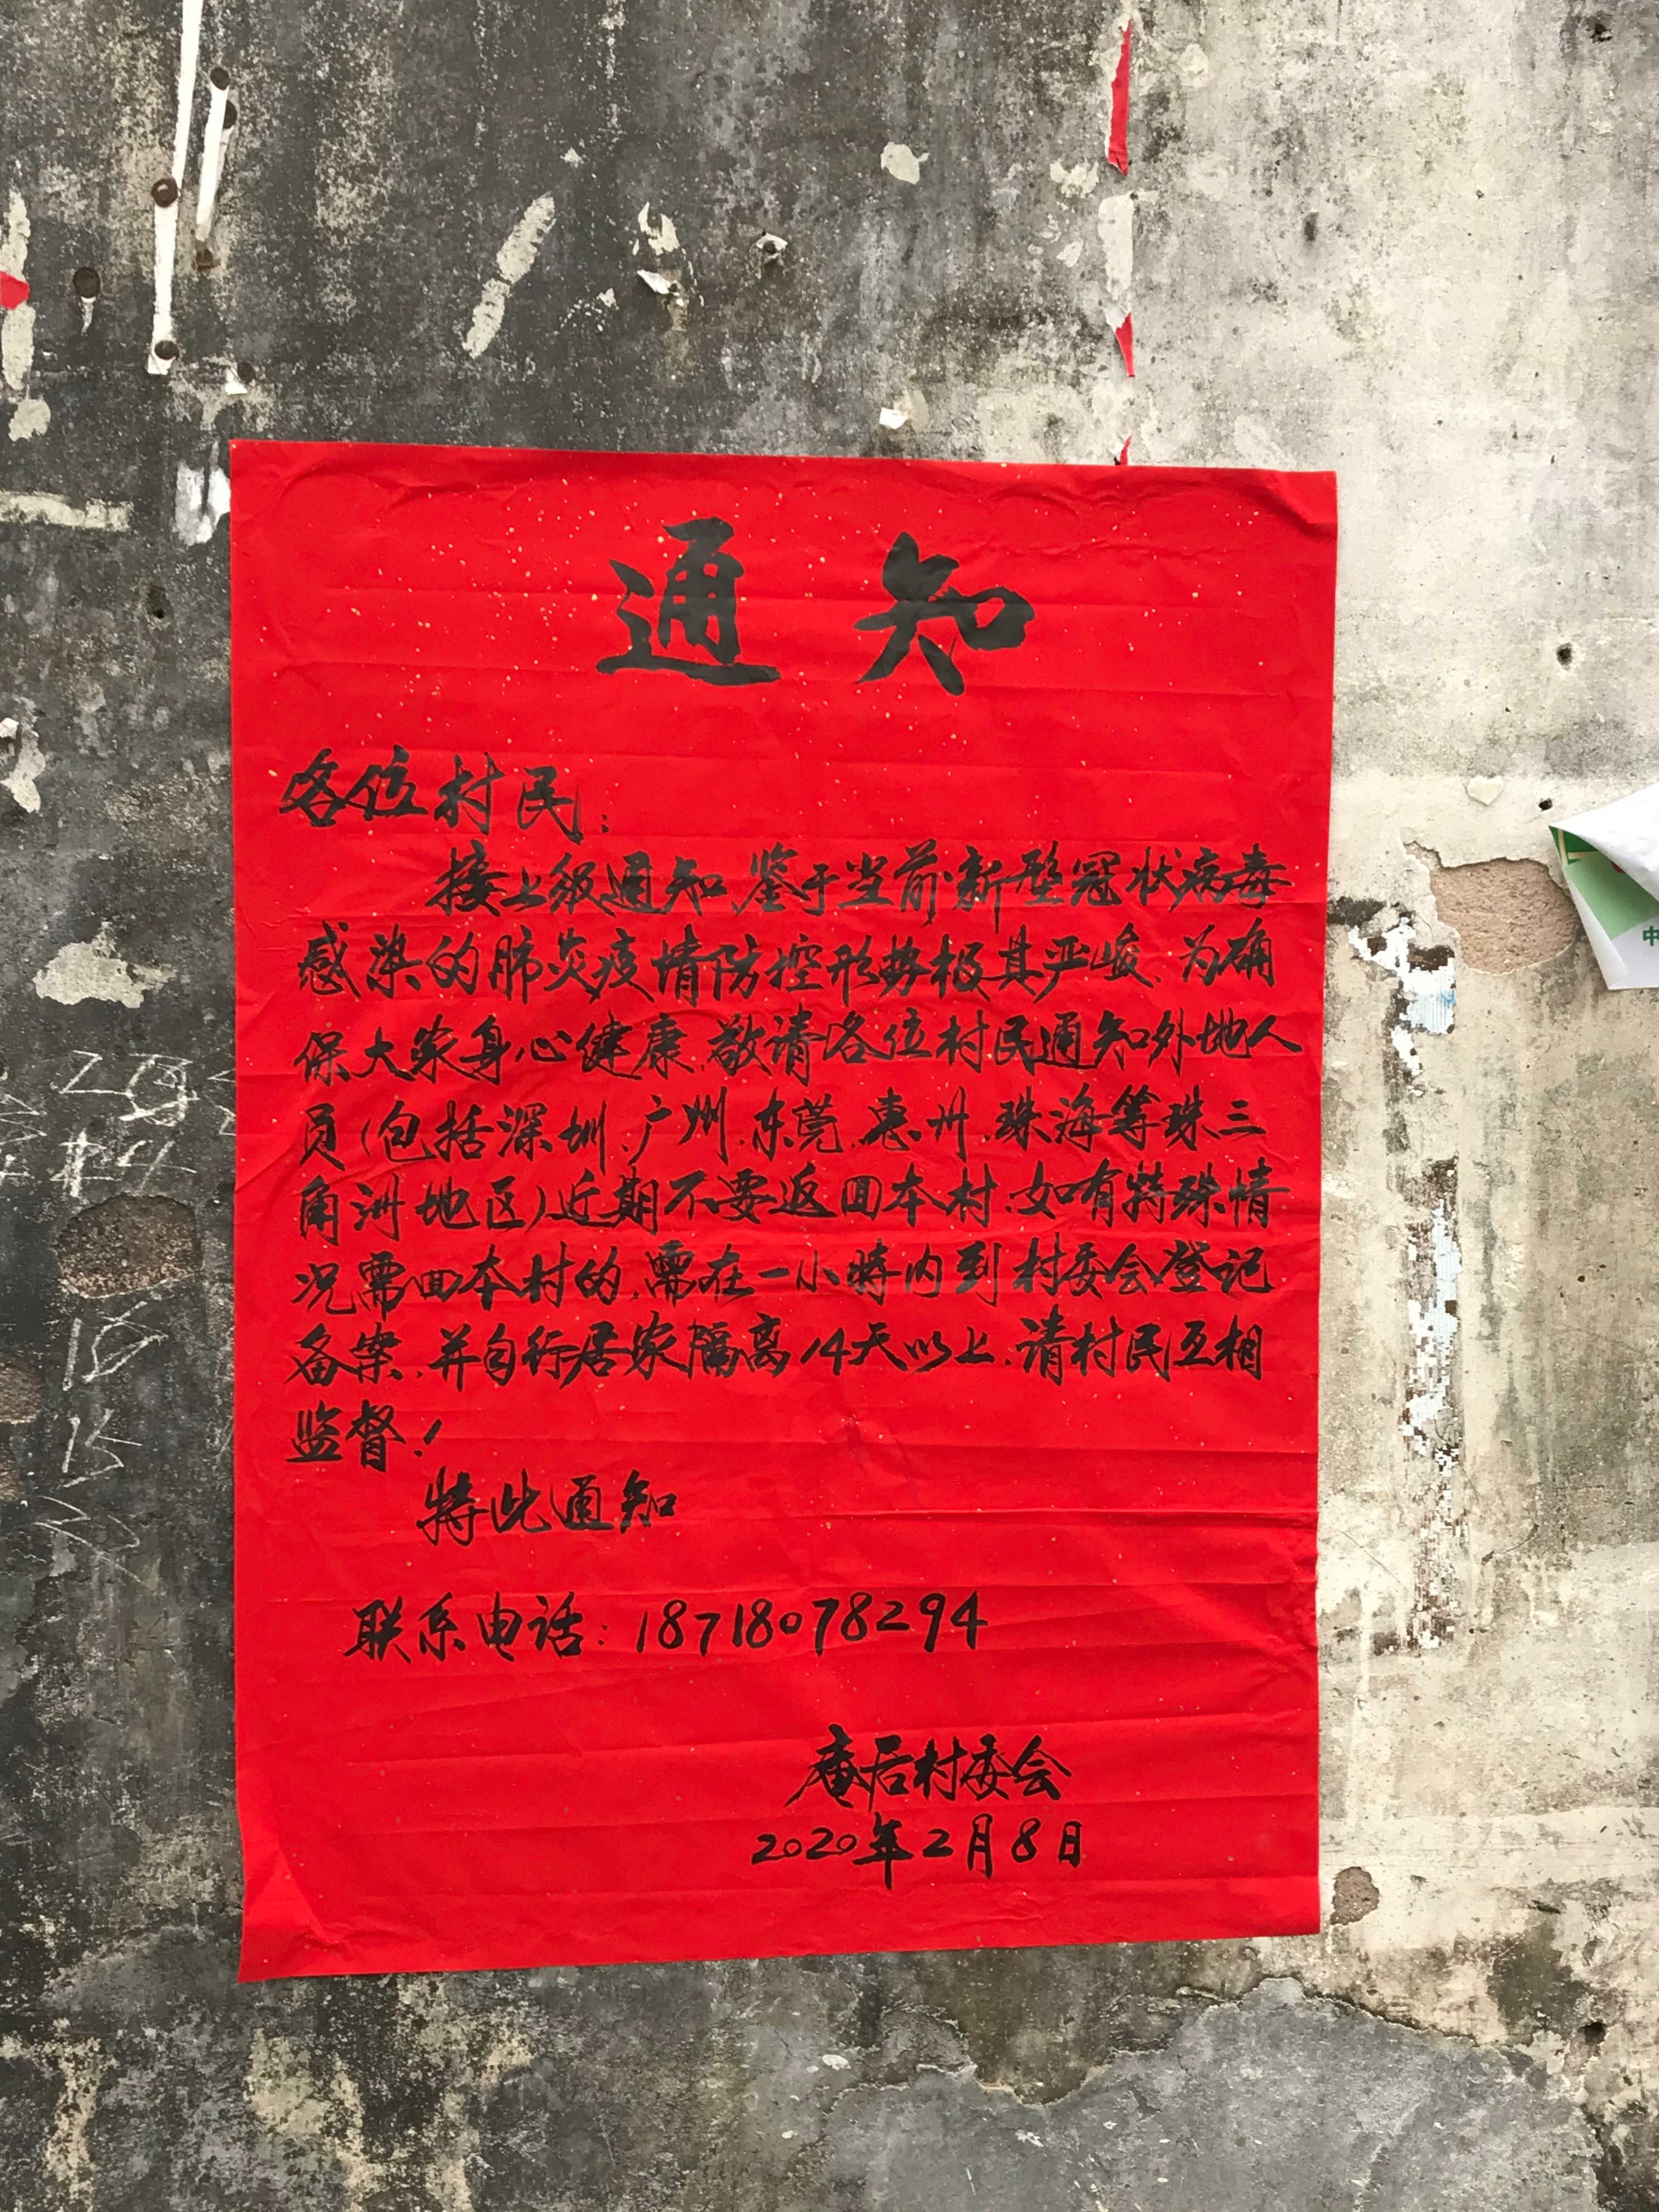 通知
各位村民：
接上级通知、鉴于当前新型冠状病毒
感染的肺炎疫情防控形势极其严峻、为确
保大家身心健康、敬请各位村民通知外地人
员(包括深圳、广州、东莞、惠州、珠海等珠三
角洲地区)近期不要返回本村、如有特殊情
况需回本村的、需在一小时内到村委会登记
备案、并自行居家隔离14天以上、请村民互相
监督！
特此通知
联系电话：18718078294
庵居村委会
2020年2月8日
中